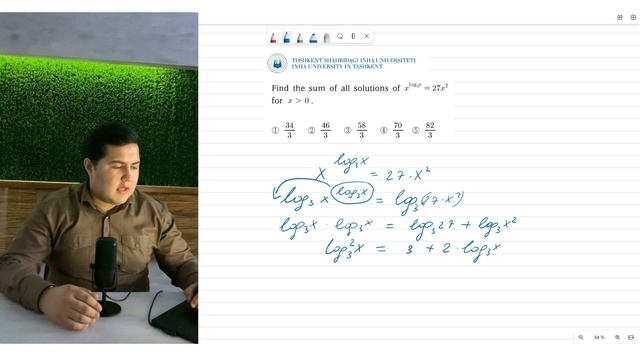 TOSHKENT SHAHRIDAGI INHA UNIVERSITETI
INHA UNIVERSITY IN TASHKENT
Find the sum of all solutions of x^{log₃x} = 27x²
for x > 0 .
① 34/3 ② 46/3 ③ 58/3 ④ 70/3 ⑤ 82/3
x^{log₃x} = 27·x²
log₃ x^{log₃x} = log₃(27·x²)
log₃x · log₃x = log₃27 + log₃x²
log₃²x = 3 + 2·log₃x
54 %